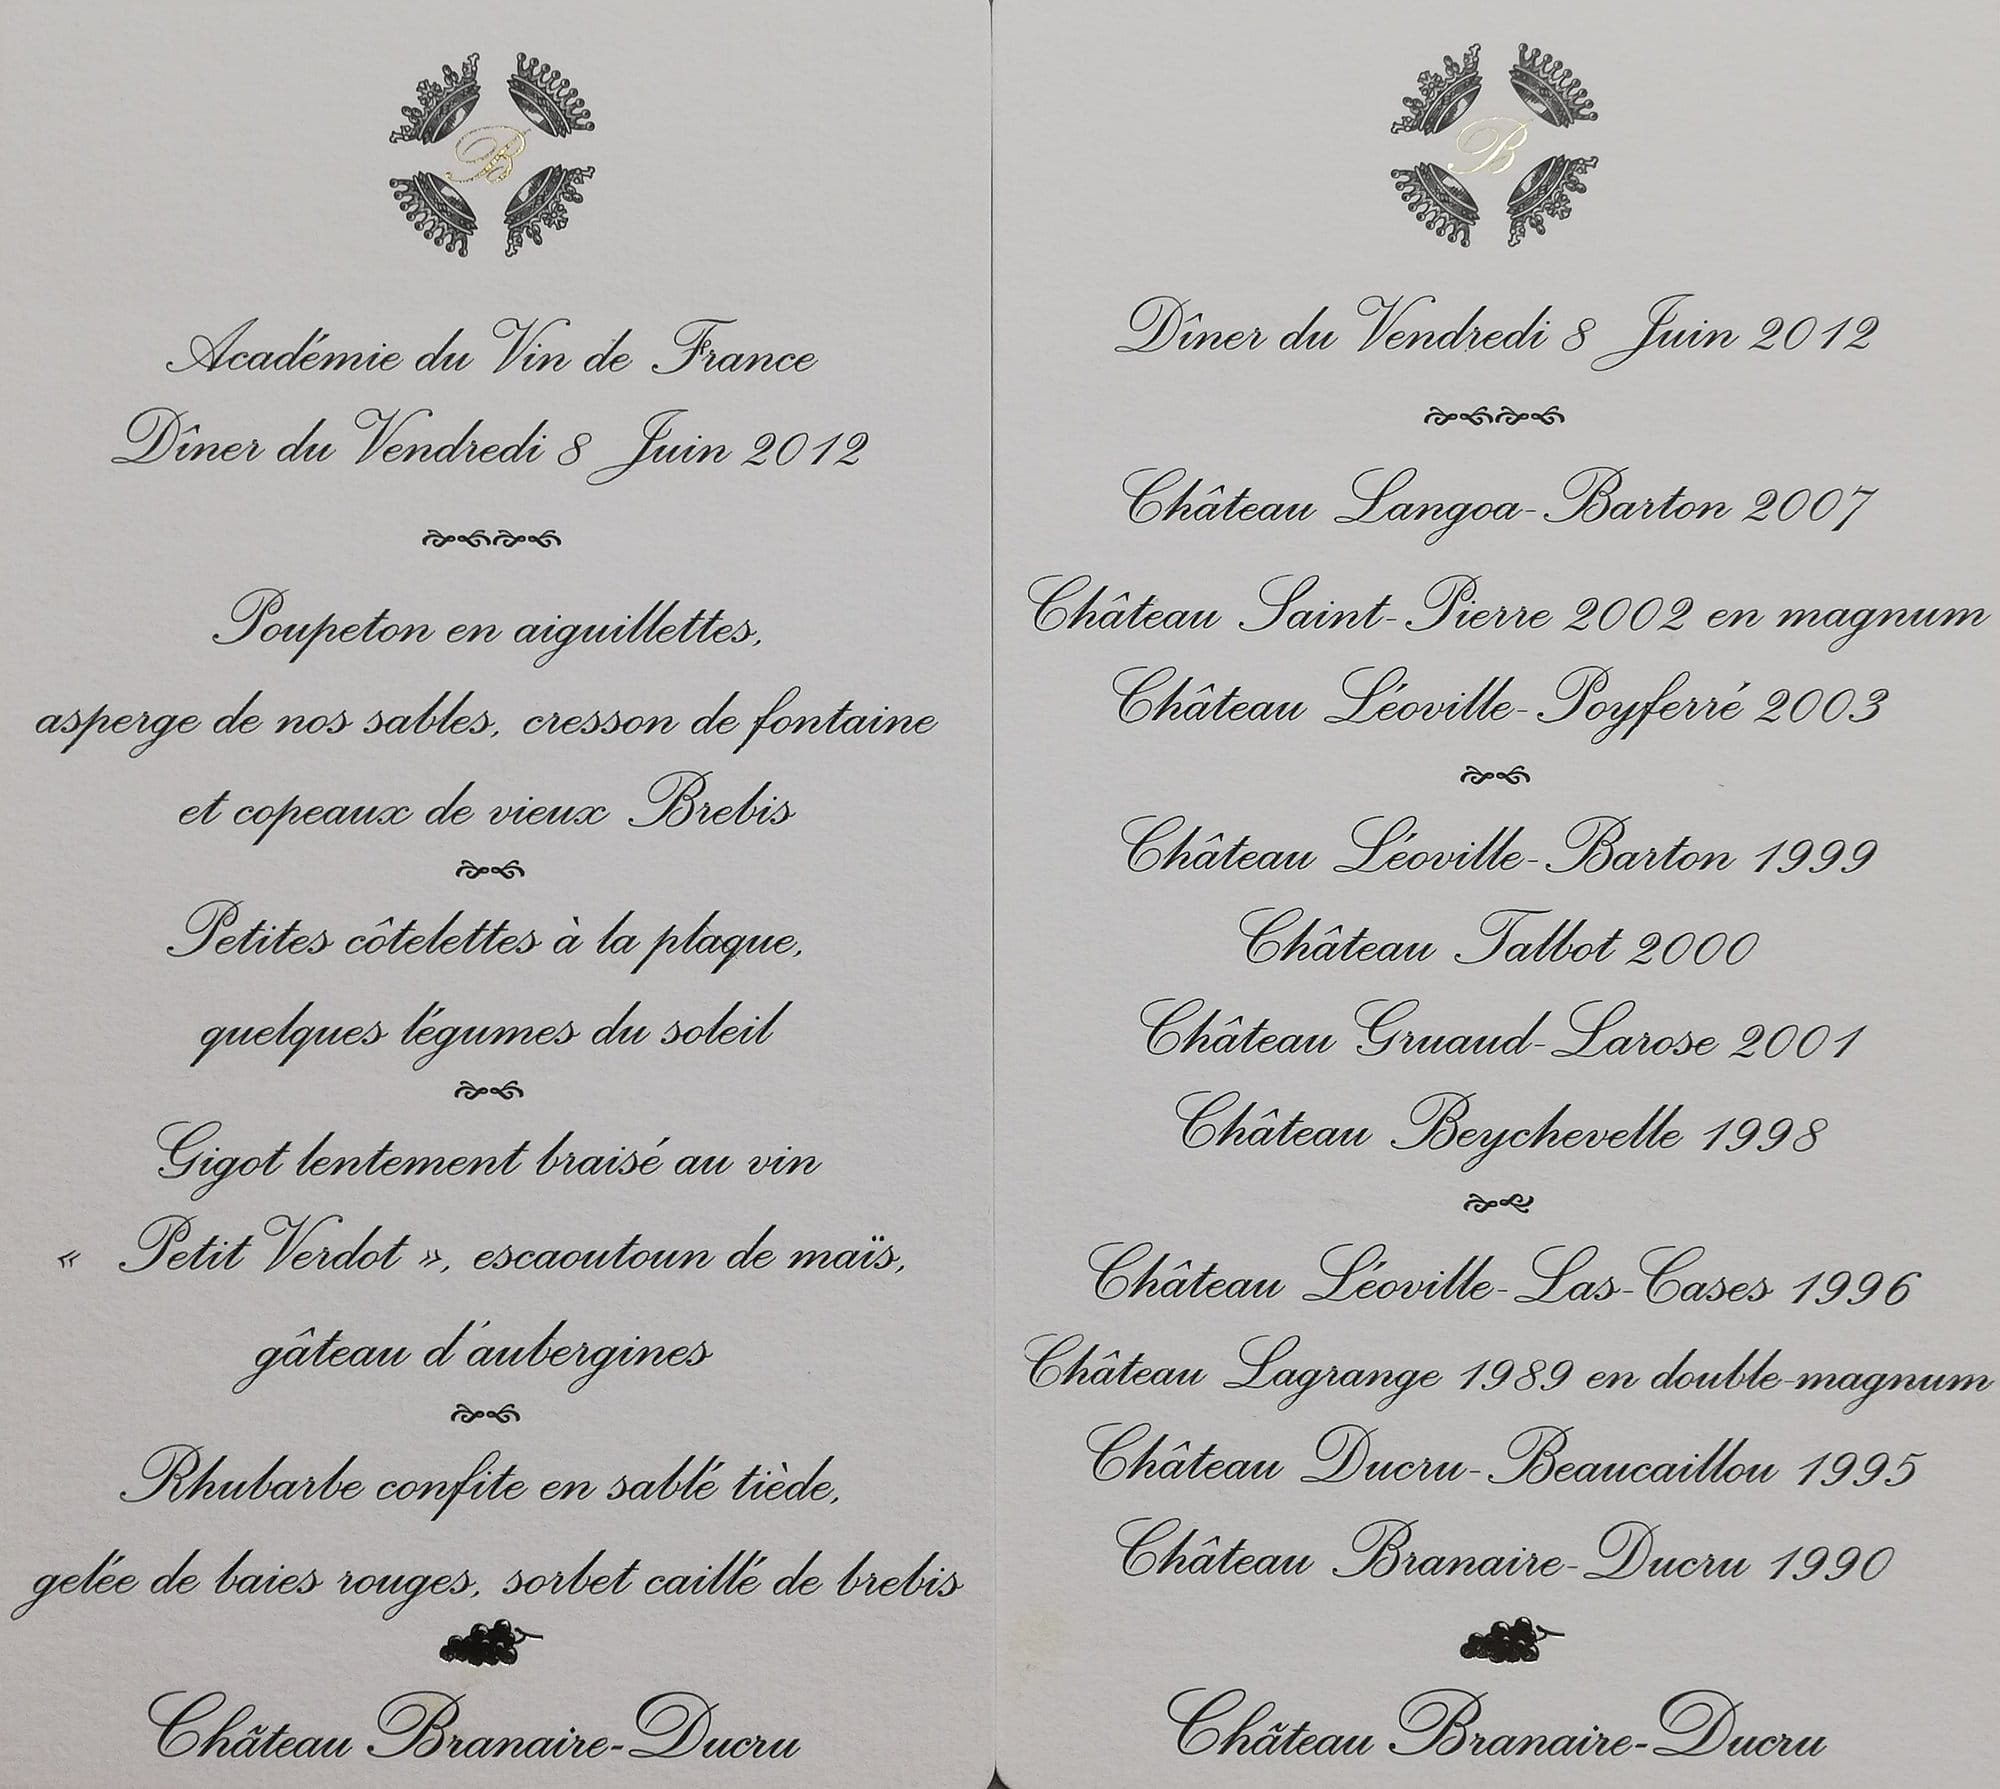 B
Académie du Vin de France
Dîner du Vendredi 8 Juin 2012
Poupeton en aiguillettes,
asperge de nos sables, cresson de fontaine
et copeaux de vieux Brebis
Petites côtelettes à la plaque,
quelques légumes du soleil
Gigot lentement braisé au vin
« Petit Verdot », escaoutoun de maïs,
gâteau d'aubergines
Rhubarbe confite en sablé tiède,
gelée de baies rouges, sorbet caillé de brebis
Château Branaire-Ducru
B
Dîner du Vendredi 8 Juin 2012
Château Langoa-Barton 2007
Château Saint-Pierre 2002 en magnum
Château Léoville-Poyferré 2003
Château Léoville-Barton 1999
Château Talbot 2000
Château Gruaud-Larose 2001
Château Beychevelle 1998
Château Léoville-Las-Cases 1996
Château Lagrange 1989 en double-magnum
Château Ducru-Beaucaillou 1995
Château Branaire-Ducru 1990
Château Branaire-Ducru